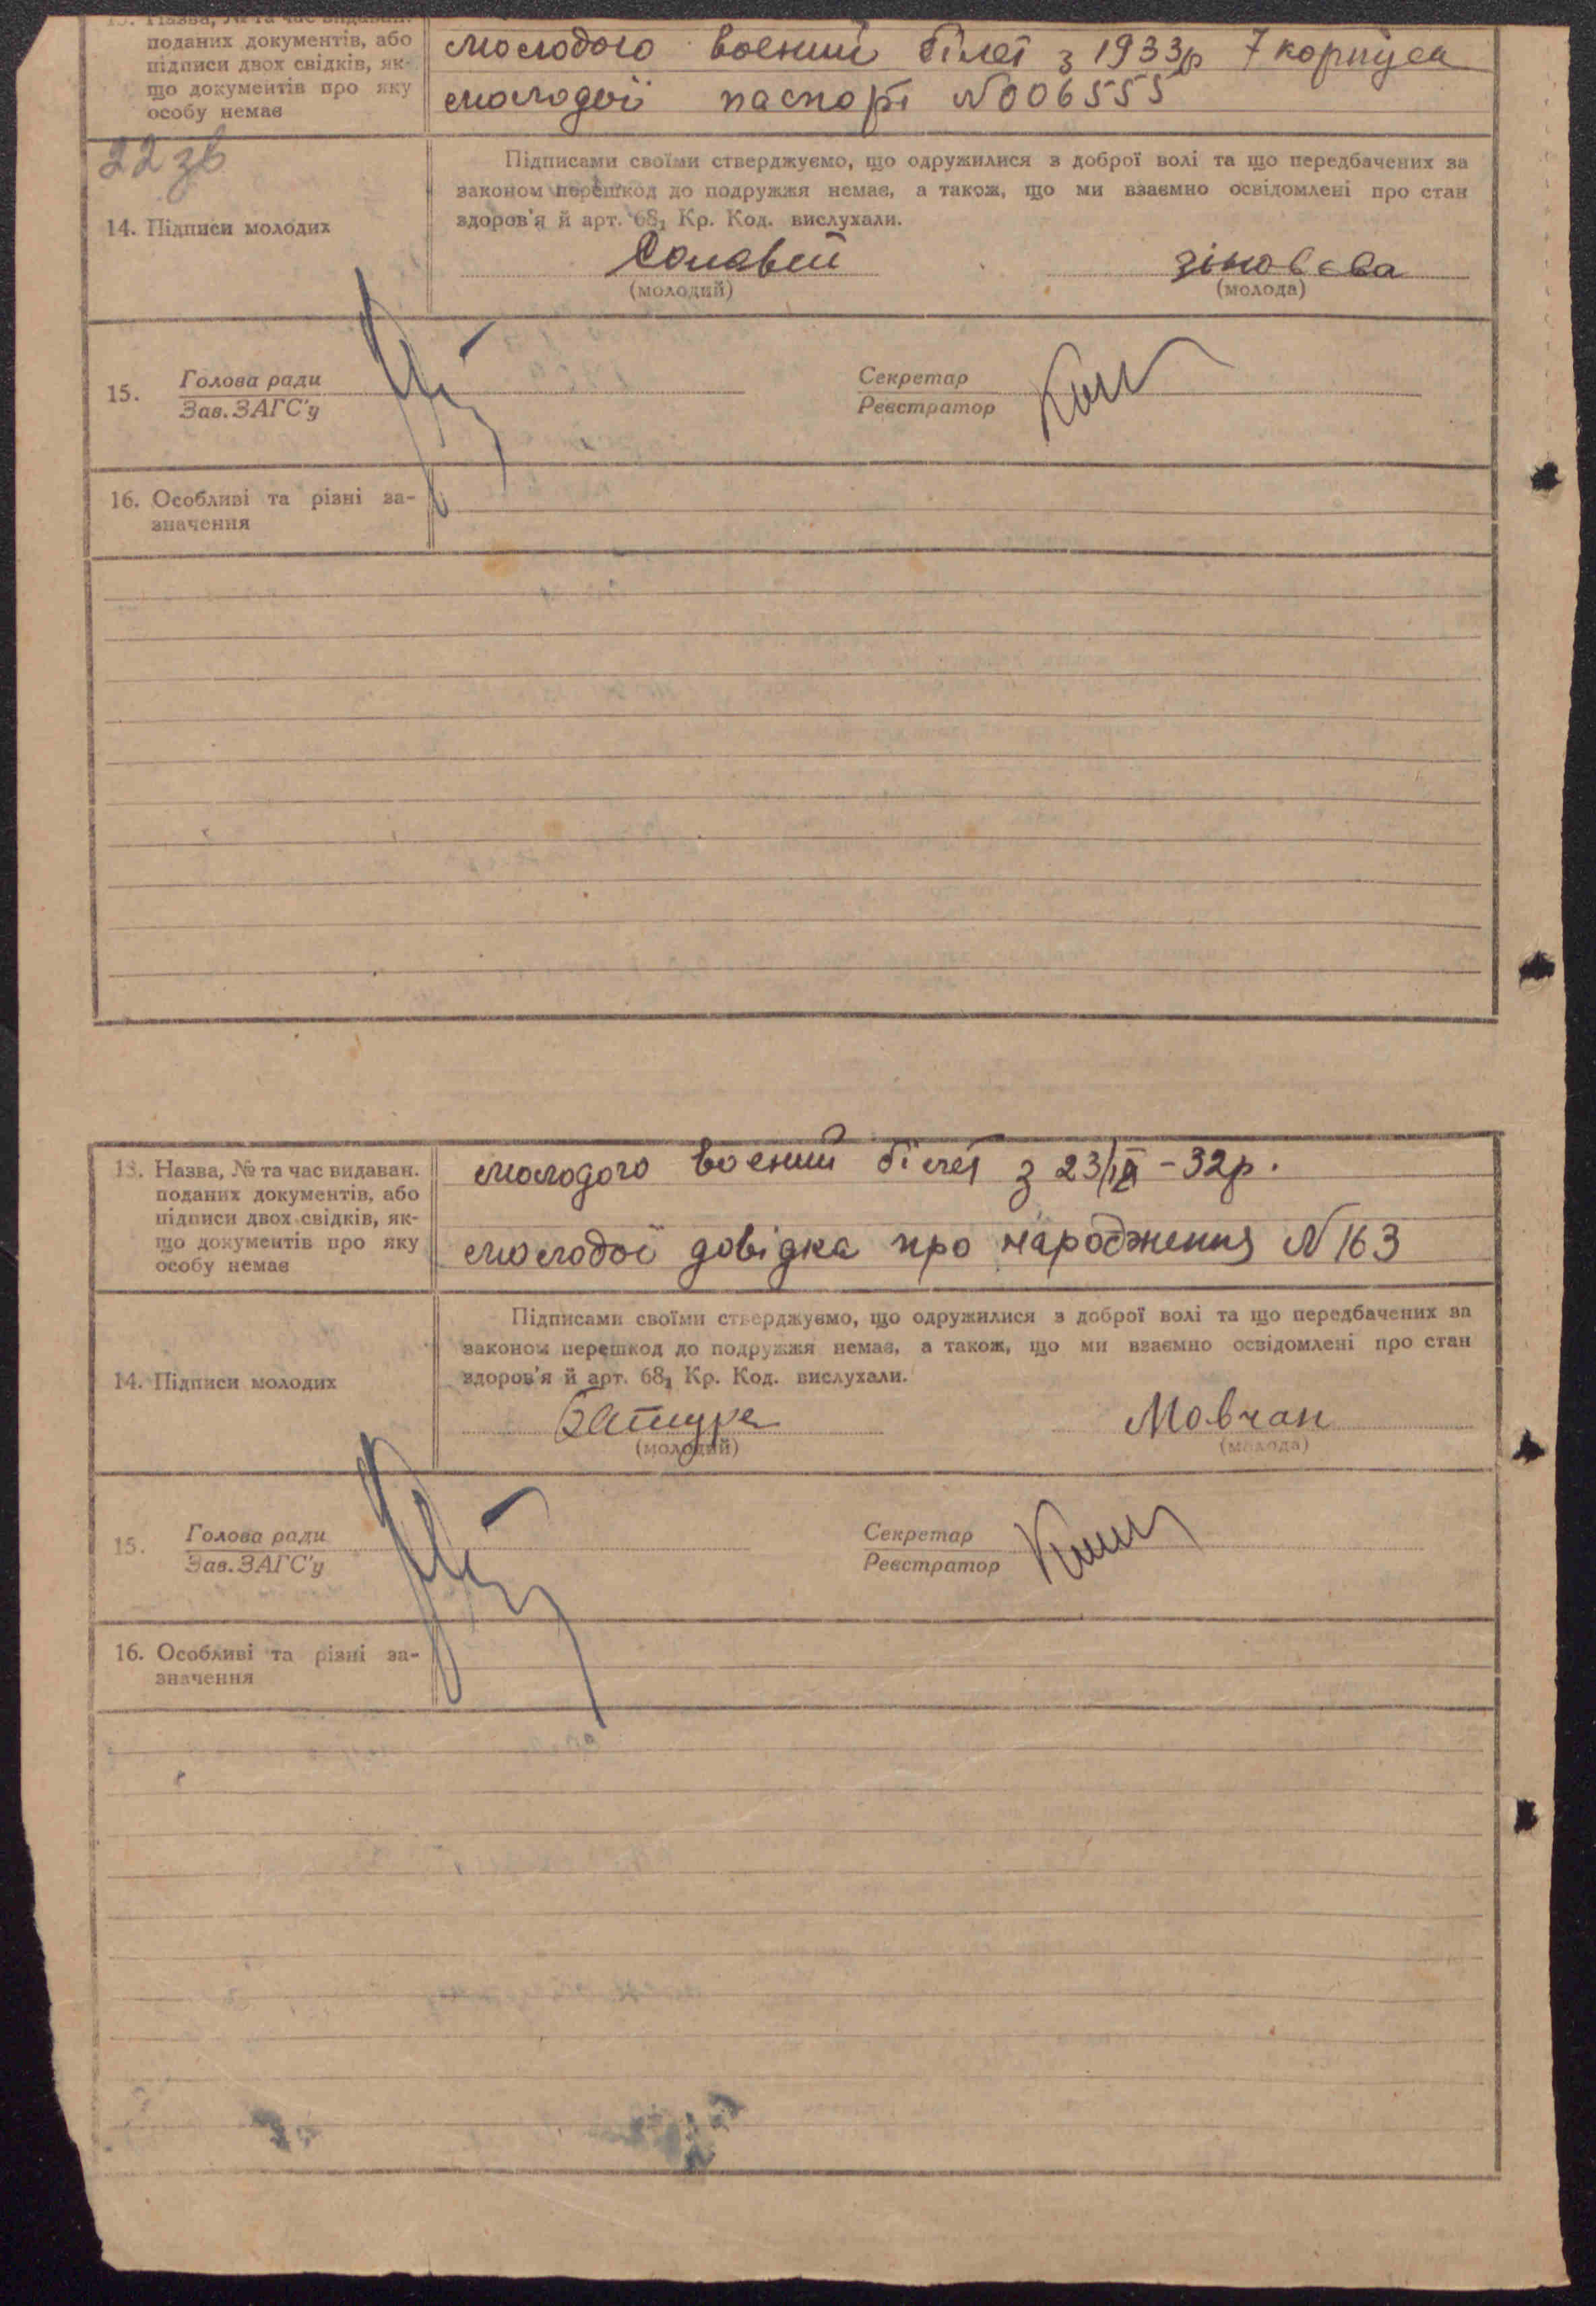 13. Назва, № та час видаван.
поданих документів, або
підписи двох свідків, як-
що документів про яку
особу немає
молодого воєний білет з 1933р 7 корпуса
молодої паспорт №006555
22 зв
14. Підписи молодих
Підписами своїми стверджуємо, що одружилися з доброї волі та що передбачених за
законом перешкод до подружжя немає, а також, що ми взаємно освідомлені про стан
здоров'я й арт. 68₁ Кр. Код. вислухали.
Солавей
(молодий)
Зіновєва
(молода)
15.
Голова ради
Зав. ЗАГС'у
Секретар
Реєстратор
16. Особливі та різні за-
значення
13. Назва, № та час видаван.
поданих документів, або
підписи двох свідків, як-
що документів про яку
особу немає
молодого воєний білет з 23/IX-32р.
молодої довідка про народження №163
14. Підписи молодих
Підписами своїми стверджуємо, що одружилися з доброї волі та що передбачених за
законом перешкод до подружжя немає, а також, що ми взаємно освідомлені про стан
здоров'я й арт. 68₁ Кр. Код. вислухали.
Батура
(молодий)
Мовчан
(молода)
15.
Голова ради
Зав. ЗАГС'у
Секретар
Реєстратор
16. Особливі та різні за-
значення